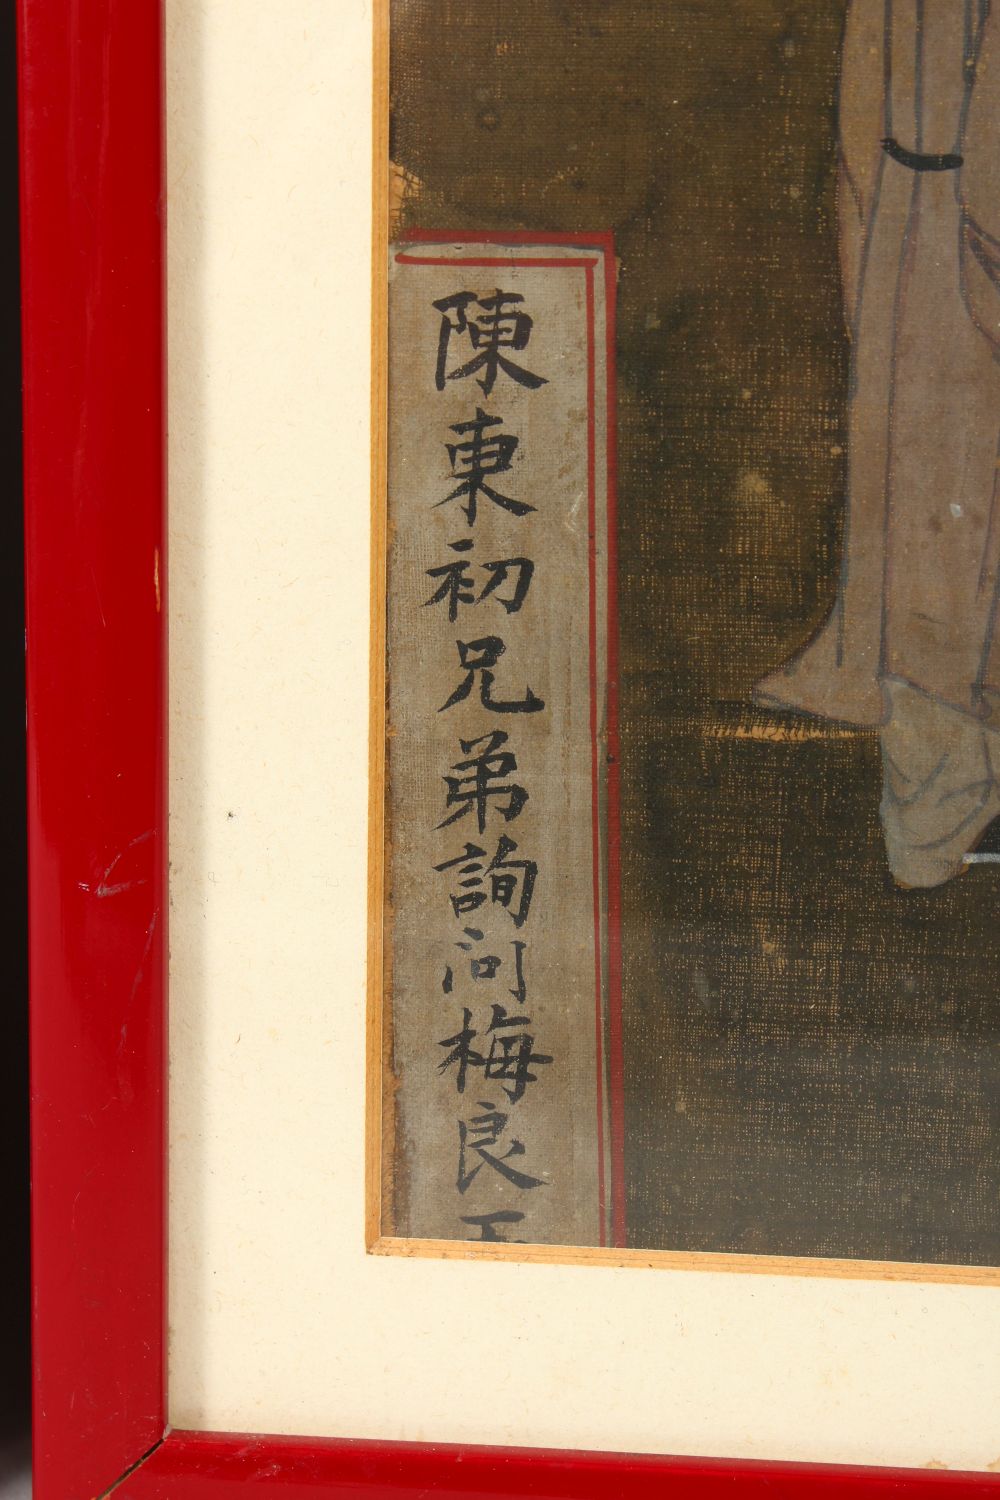 陳東初兄弟詢问梅良玉